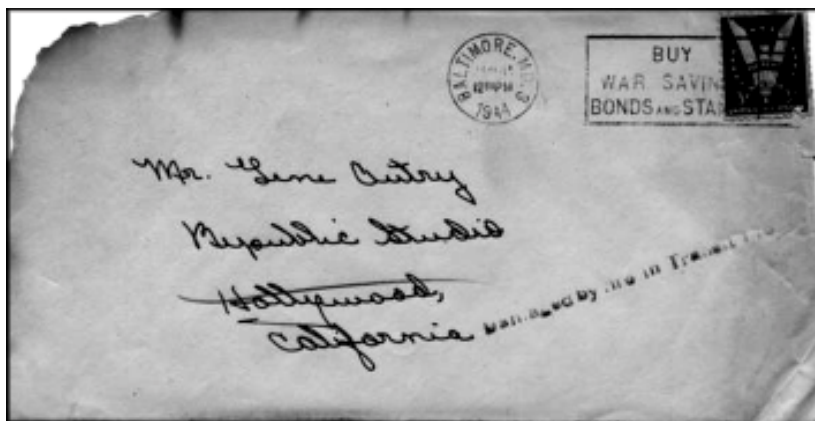 BALTIMORE, MD. 3
12 PM
1944
BUY
WAR SAVIN
BONDS AND STA
Mr. Gene Autry
Republic Studio
Hollywood,
California
Damaged by fire in Transit